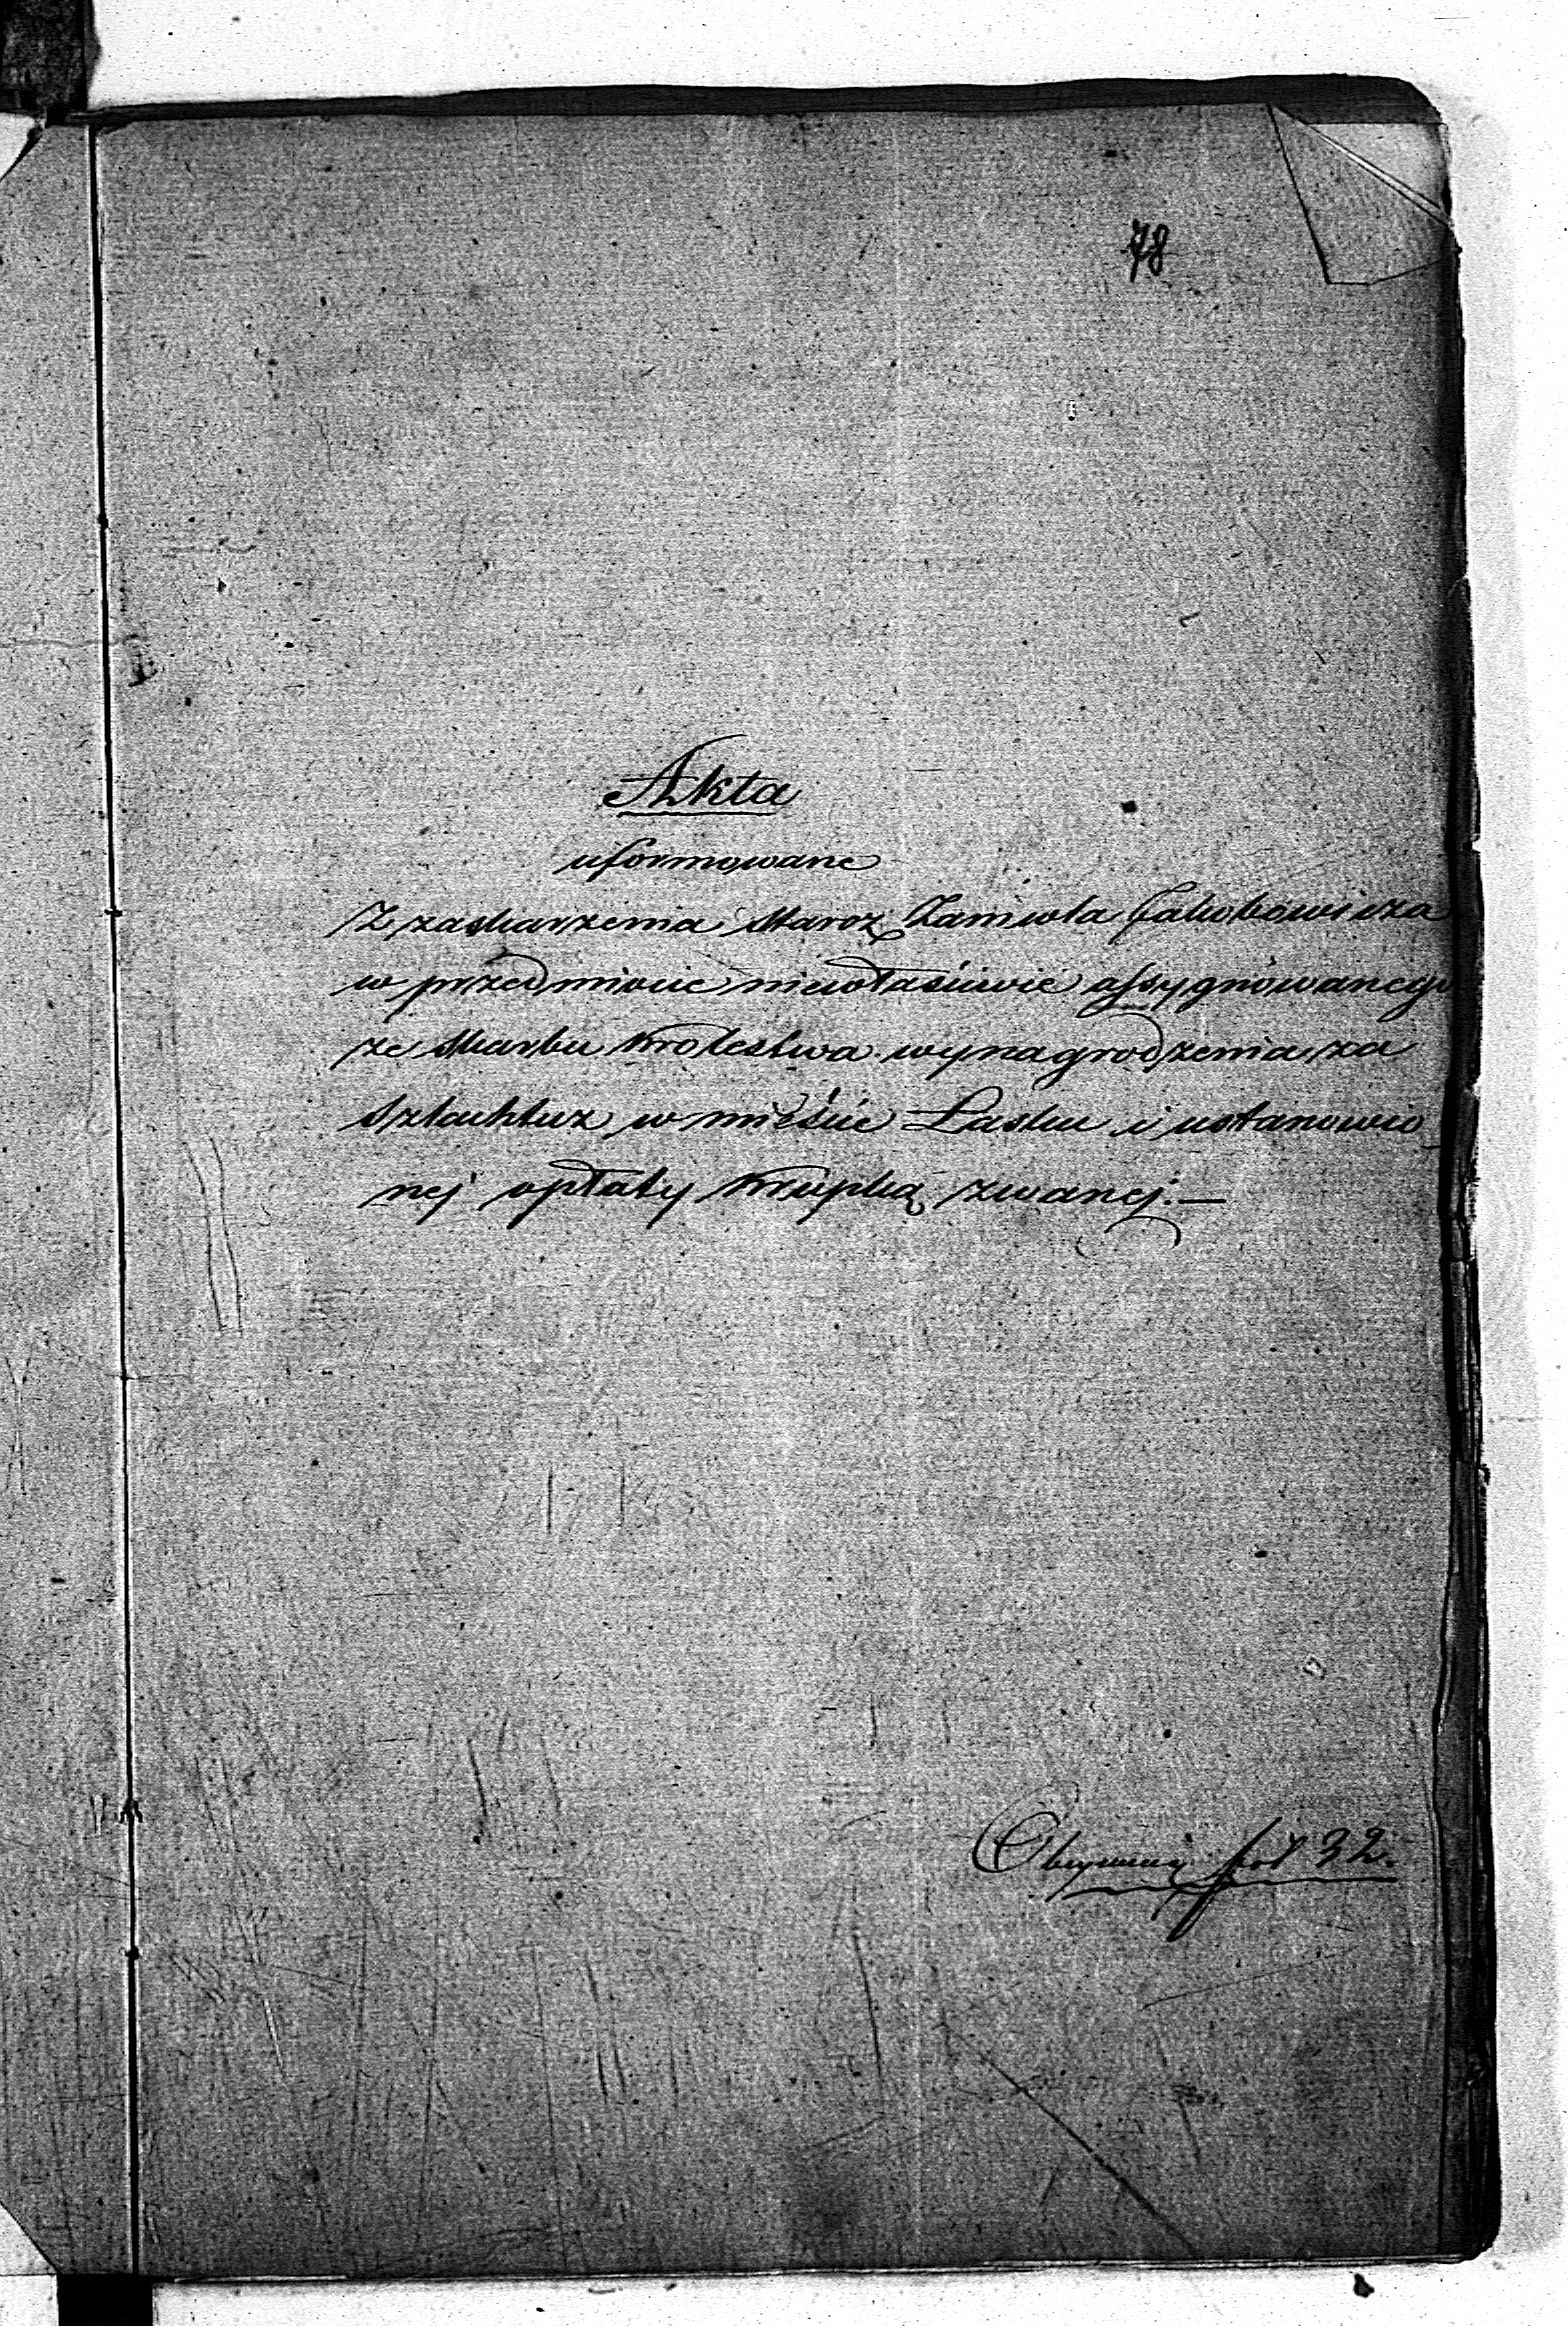 78
Akta
uformowane
Z zaskarżenia Staroz. Zamwla Jakubowicza
w przedmiocie niewłaściwie assygnowanego
ze Skarbu Krolestwa wynagrodzenia za
Szlachtuz w mieście Lasku i ustanowio
nej opłaty Kropką zwanej.—
fol 32.